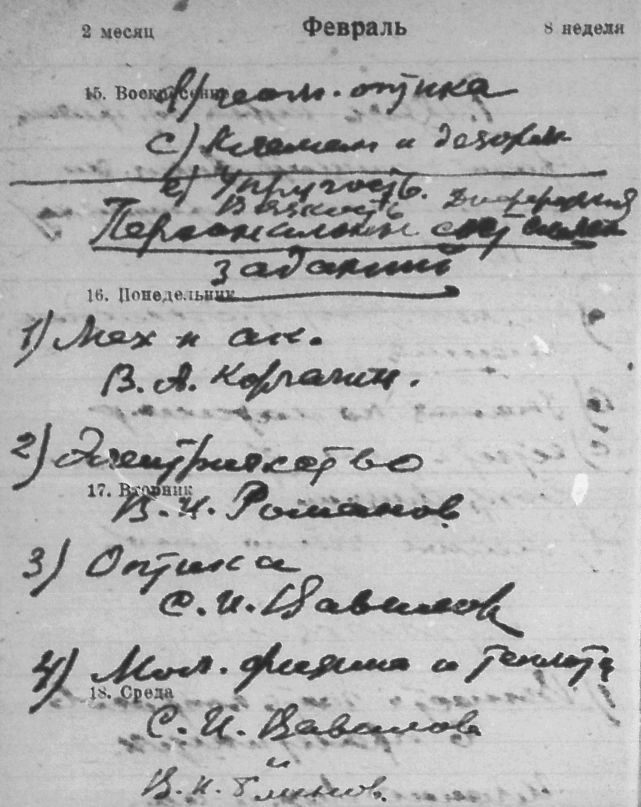 2 месяц Февраль 8 неделя
15. Воскресение
геом. оптика
с)
е) Упругость.
Вязкость
Персональн
заданий
16. Понедельник
1) Мех и ак.
В. А. Корчагин.
2) Электричество
17. Вторник
В. И. Романов
3) Оптика
С. И. Вавилов
4) Мол. физика и теплота
18. Среда
С. И. Вавилов
и
В. И.